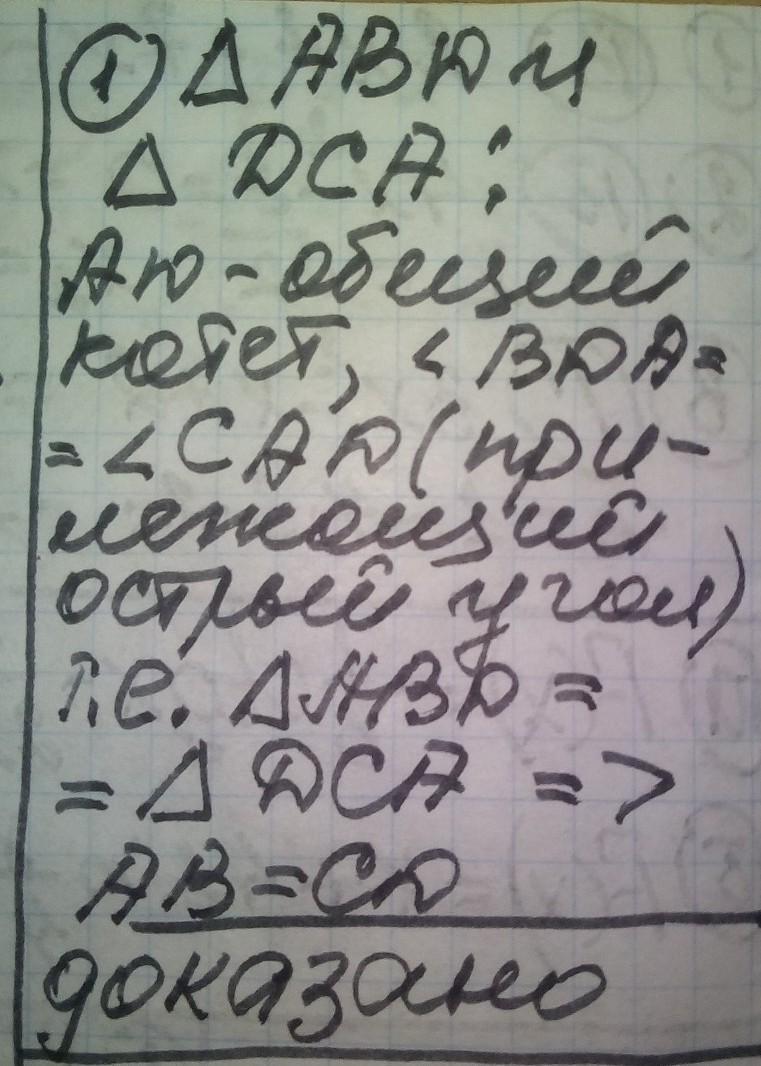 ① △ ABD и
△ DCA:
AD - общий
катет, < BDA =
= < CAD (при-
лежащий
острый угол)
т.е. △ ABD =
= △ DCA =>
AB = CD
доказано